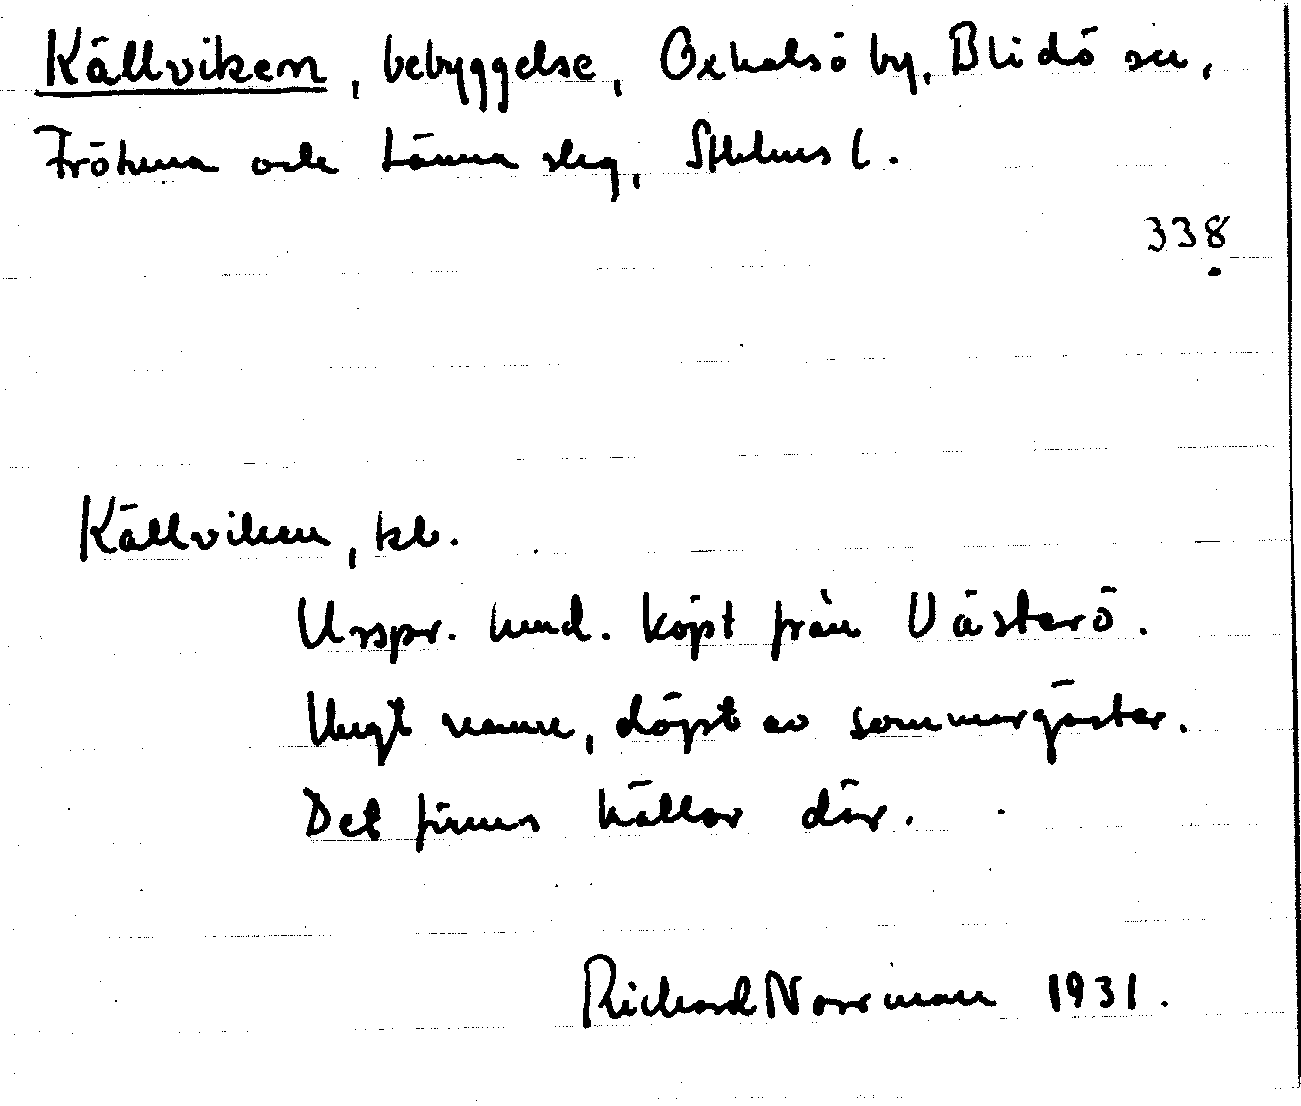 Källviken, bebyggelse, Oxhalsö by, Blidö sn,
Frötuna och Länna slg, Sthlms l.
338
Källviken, bb.
Urspr. hmd. köpt från Västerö.
Ungt namn, döpt av sommargäster.
Det finns källor där.
Richard Norrman 1931.